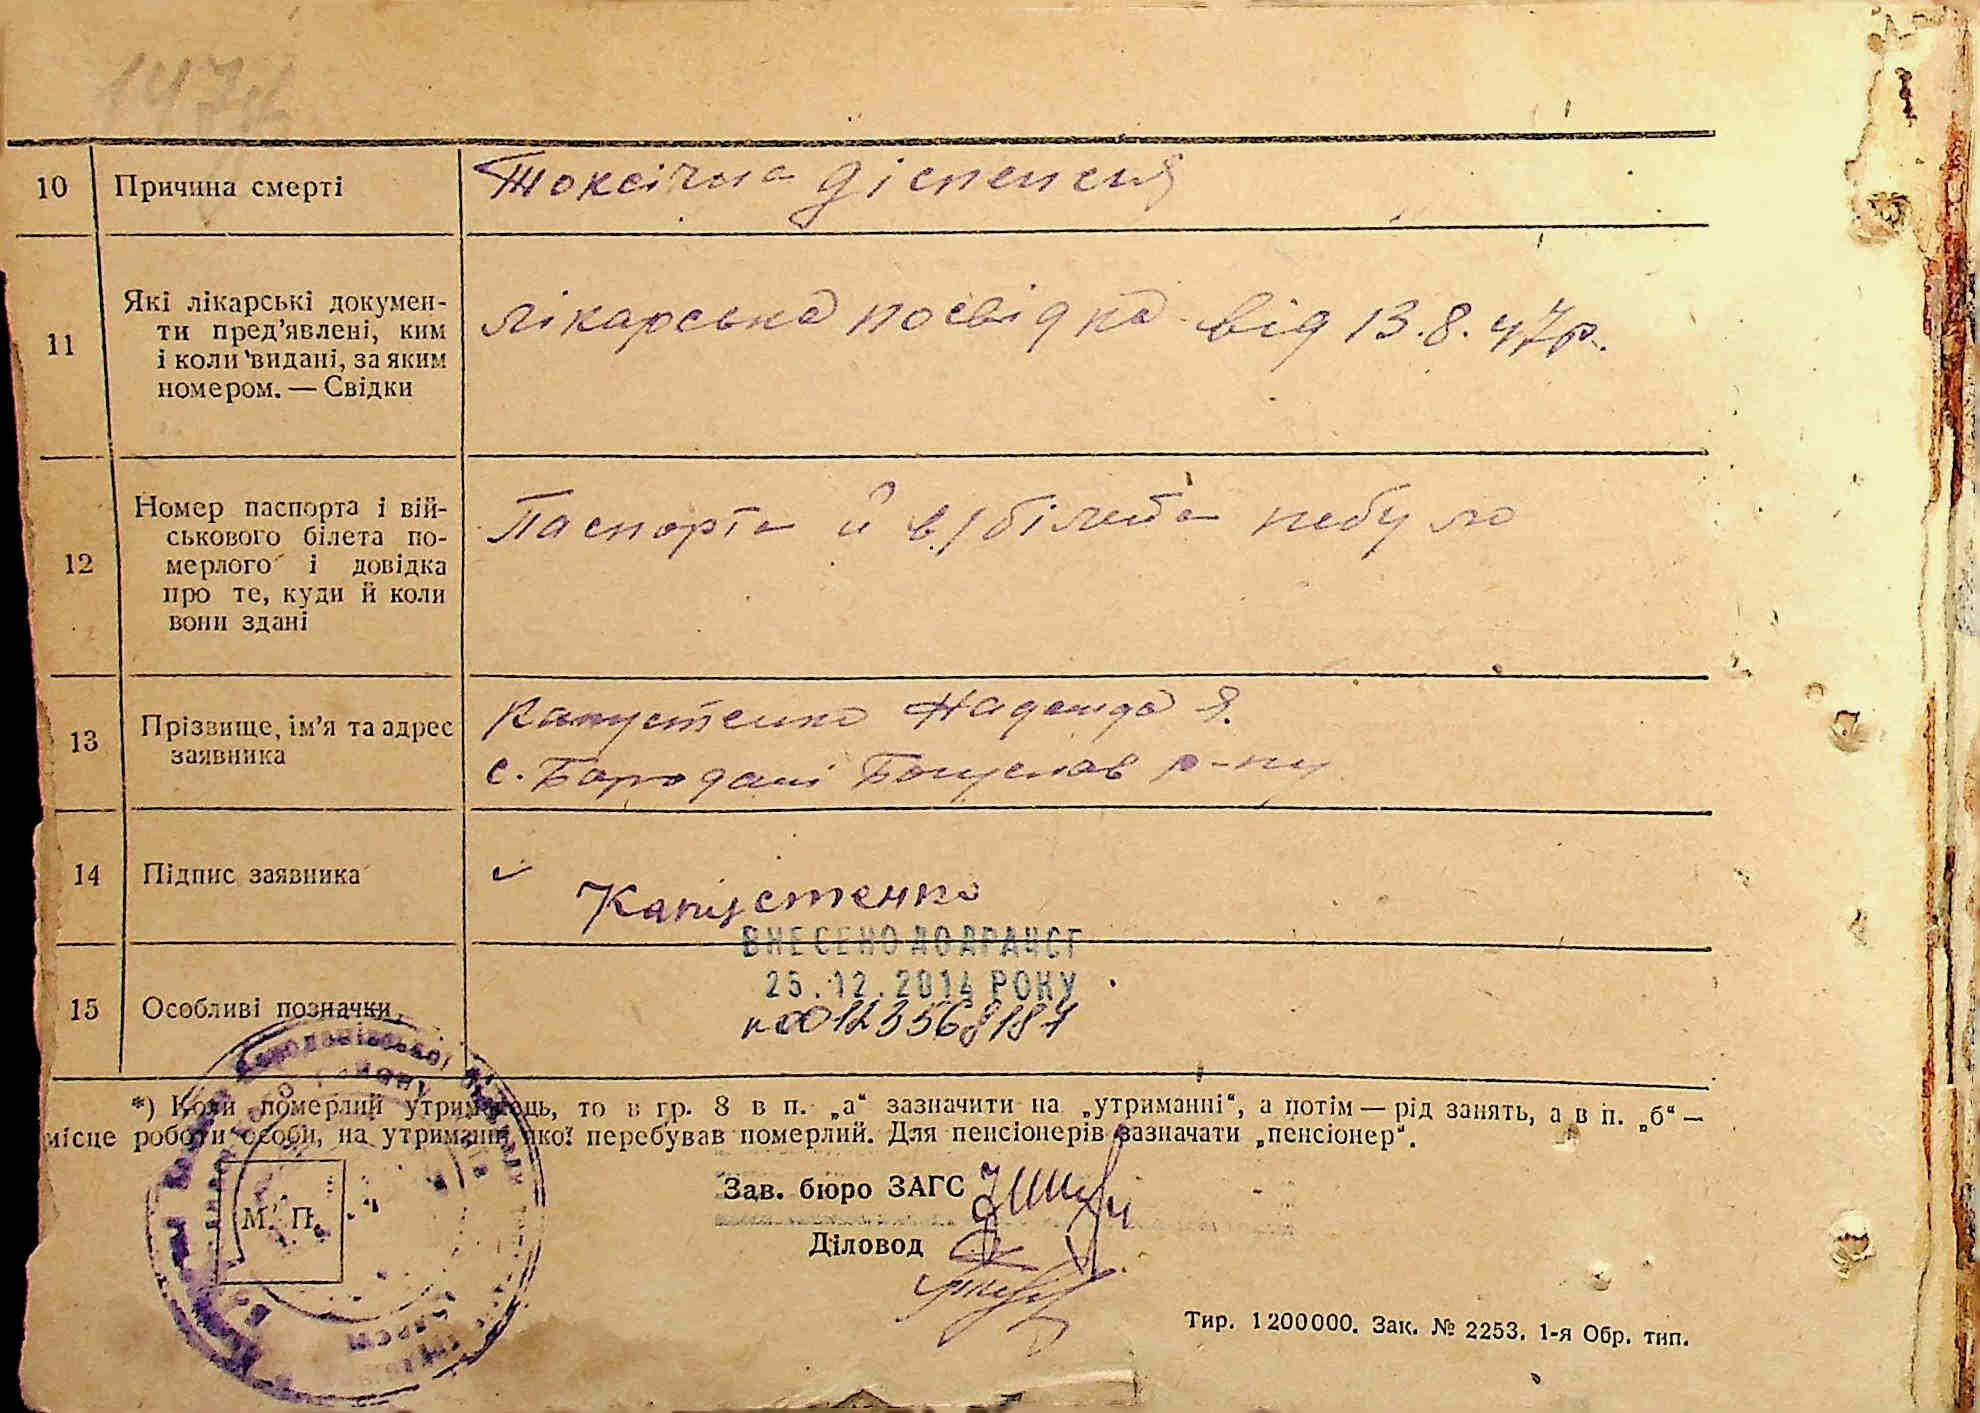 10 Причина смерті Токсічна діспепсия
11 Які лікарські докумен-
ти пред'явлені, ким
і коли видані, за яким
номером. — Свідки
лікарська посвідка від 13.8.47р.
12 Номер паспорта і вій-
ськового білета по-
мерлого і довідка
про те, куди й коли
вони здані
Паспорта й в/білета небуло
13 Прізвище, ім'я та адрес
заявника
Капустенко Надежда Я.
с. Бородані Богуслав р-ну
14 Підпис заявника
Капустенко
ВНЕСЕНО ДО ДРАЦСГ
25.12.2014 РОКУ
15 Особливі позначки
00123568184
*) Коли померлий утриманець, то в гр. 8 в п. „а“ зазначити на „утриманні“, а потім — рід занять, а в п. „б“ —
місце роботи особи, на утриманні якої перебував померлий. Для пенсіонерів зазначати „пенсіонер“.
Зав. бюро ЗАГС
М. П.
Діловод
Тир. 1200000. Зак. № 2253. 1-я Обр. тип.